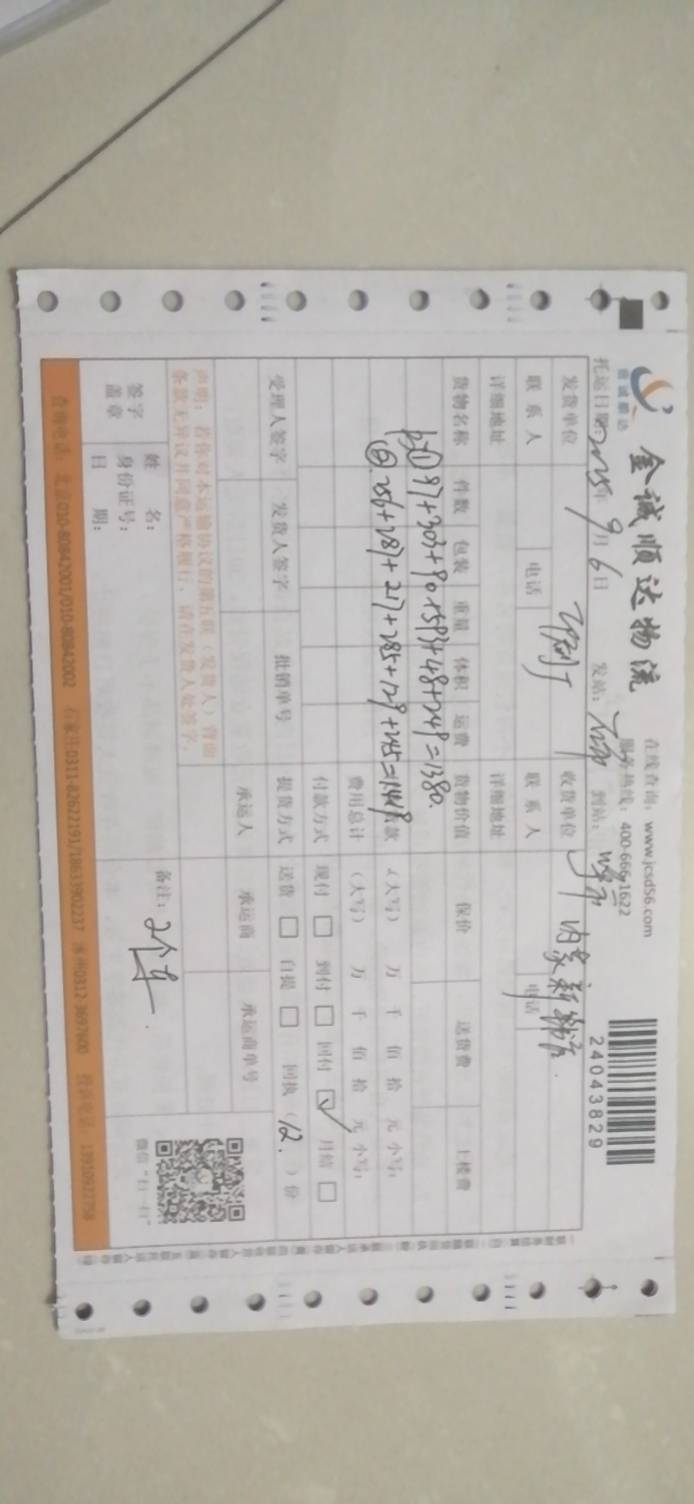 金诚顺达
金诚顺达物流
在线查询：www.jcsd56.com
服务热线：400-666-1622
24043829
托运日期：2025年9月6日 发站： 到站：
发货单位 收货单位 内蒙新
联系人 电话 联系人 电话
详细地址 详细地址
货物名称 件数 包装 重量 体积 运费 货物价值 保价 送货费 上楼费
97+303+90+593+48+249=1380.
256+287+217+285+129+245=1419
款（大写） 万 仟 佰 拾 元 小写：
费用总计 （大写） 万 仟 佰 拾 元 小写：
付款方式 现付 □ 到付 □ 回付 ☑ 月结 □
受理人签字 发货人签字 批销单号 提货方式 送货 □ 自提 □ 回执（12.）份
承运人 承运商 承运商单号
声明：若你对本运输协议的第五联（发货人）背面
条款无异议并同意严格履行，请在发货人处签字。
备注：2个车.
签字盖章
姓名：
身份证号：
日期：
微信“扫一扫”
查询电话：北京010-80842001/010-80842002 石家庄0311-82622191/18633902237 涿州0312-3697600 投诉电话：13910922758